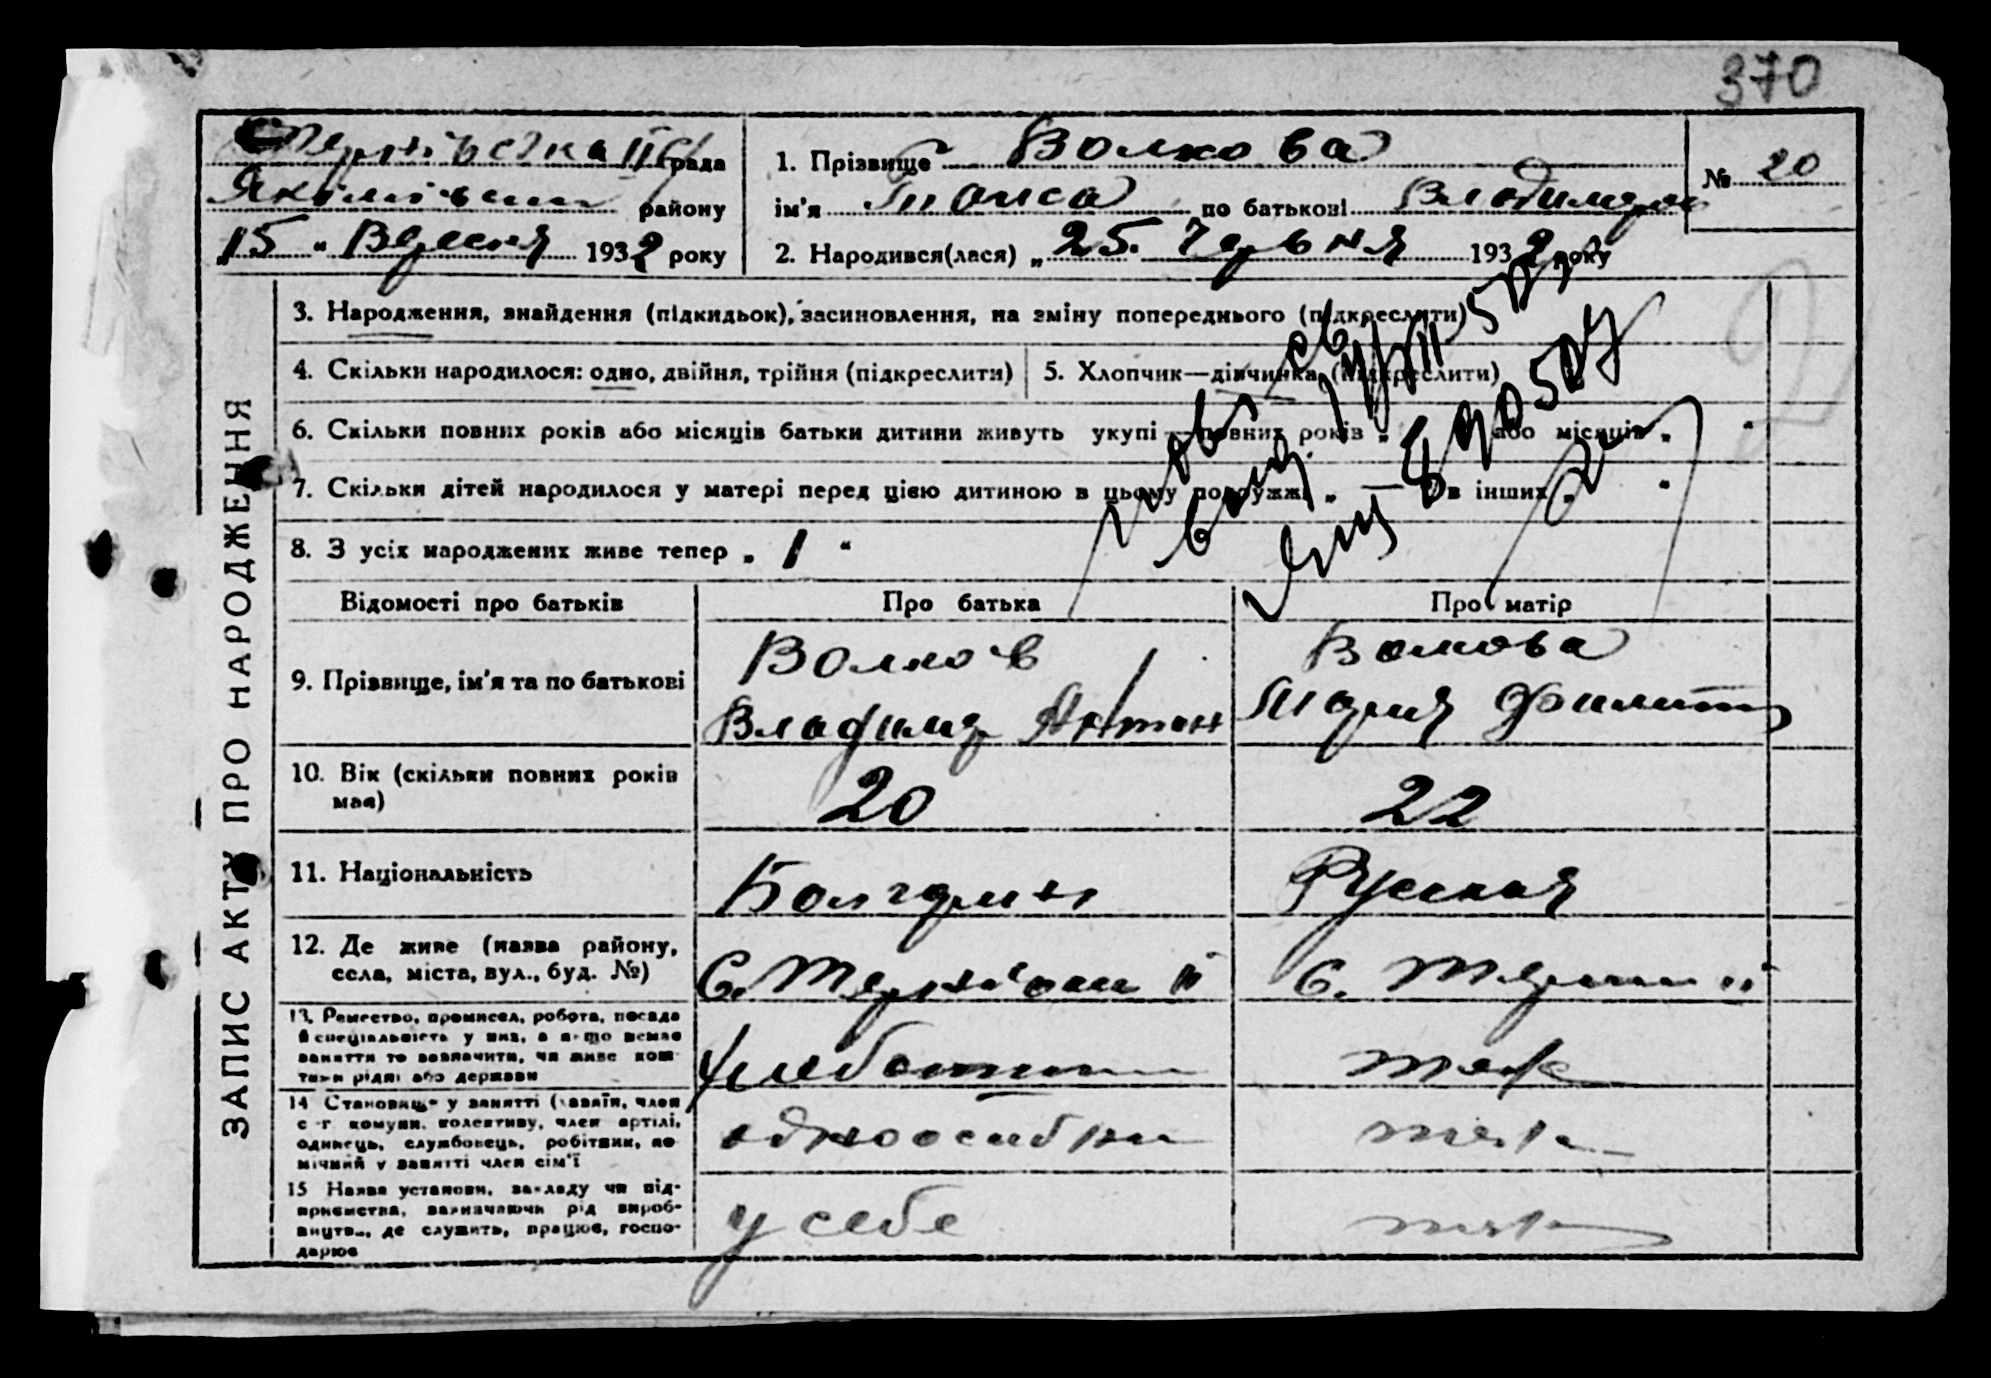 370
Тернівська II с/рада
Якимівськ району
„15“ Вересня 1932 року
1. Прізвище Волкова
ім'я Таиса по батькові Владимиров
№ 20
2. Народився(лася) „25. Червня 1932 року
ЗАПИС АКТУ ПРО НАРОДЖЕННЯ
3. Народження, знайдення (підкидьок), засиновлення, на зміну попереднього (підкреслити)
4. Скільки народилося: одно, двійня, трійня (підкреслити)
5. Хлопчик—дівчинка (підкреслити)
6. Скільки повних років або місяців батьки дитини живуть укупі — повних років „ або місяців „ “
7. Скільки дітей народилося у матері перед цією дитиною в цьому подружжі „ — в інших „ “
8. З усіх народжених живе тепер „ 1 “
Відомості про батьків
Про батька
Про матір
9. Прізвище, ім'я та по батькові
Волков
Владимир Антон
Волкова
Мария Филип
10. Вік (скільки повних років має)
20
22
11. Національність
Болгарин
Русская
12. Де живе (назва району,
села, міста, вул., буд. №)
с. Тернівка II
с. Терни II
13. Ремество, промисел, робота, посада
й спеціальність у них, а якщо немає
заняття то зазначити, чи живе кош-
тами рідні або держави
Хлебопаш
теж
14 Становище у занятті (хазяїн, член
с.-г. комуни, колективу, член артілі,
одинець, службовець, робітник, по-
мічний у занятті член сім'ї
одноосибни
теж
15 Назва установи, закладу чи під-
приємства, зазначаючи рід вироб-
ництва, де служить, працює, госпо-
дарює
у себе
теж